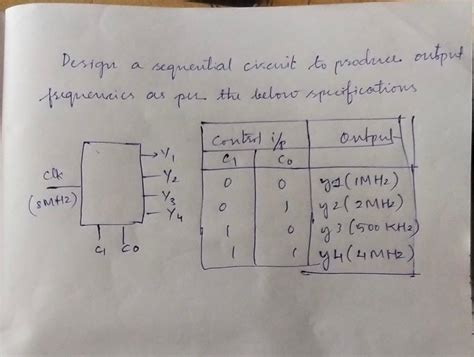 Design a sequential circuit to produce output
frequencies as per the below specifications
Clk
(8MHz)
Y1
Y2
Y3
Y4
C1 C0
Control i/p Output
C1 C0
0 0 y1 (1MHz)
0 1 y2 (2MHz)
1 0 y3 (500 KHz)
1 1 y4 (4MHz)